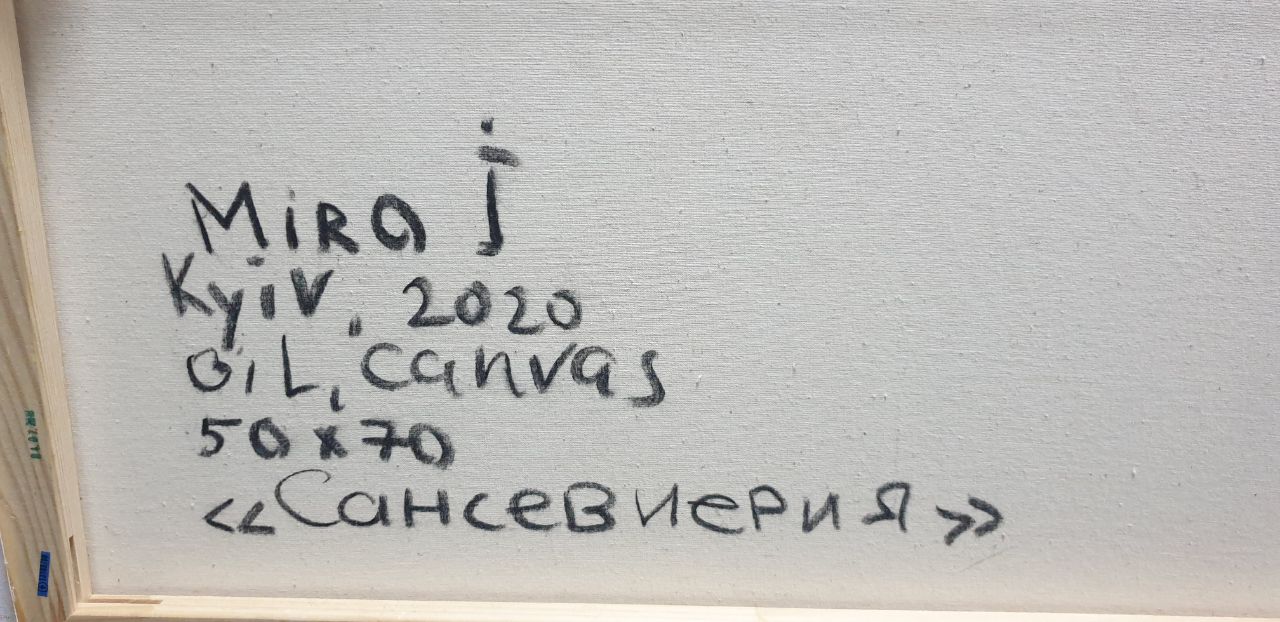 Mira J
Kyiv, 2020
oil, canvas
50x70
«Сансевиерия»